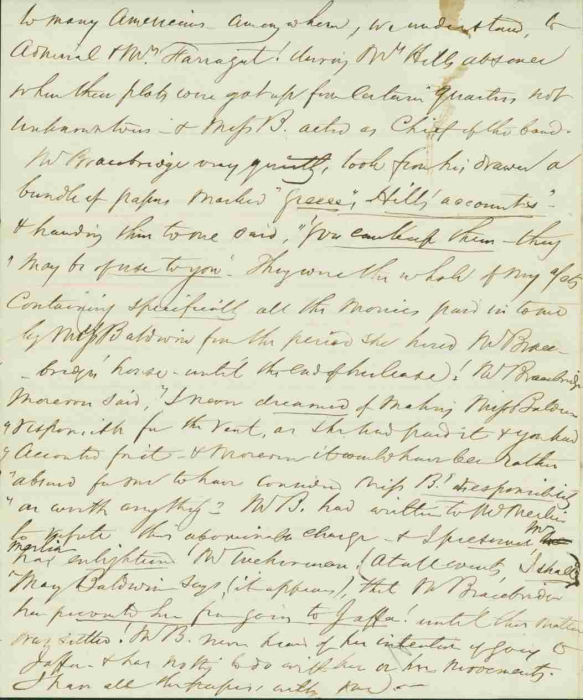 to many Americans anywhere, we understand, to
Admiral & Mrs. Farragut! during Mr. Hills absence
when their plots were got up from Certain "Quarters not
& Miss B. acted as Chief of the band.
Mr Bracebridge very quietly, took from his drawer a
bundle of papers marked "Greece", Hill's accounts" -
& handing them to me said, "You can keep them - they
"may be of use to you". They were the whole of my a/cs
Containing specifically all the monies paid in to me
by Miss Baldwin for the period she hired Mr Brace-
-bridge's house - until the end of her lease! Mr Bracebridge
Moreover said, "I never dreamed of making Miss Baldwin
"responsible for the rent, as she had paid it & you had
"Accounted for it - & Moreover it would have been rather
"absurd for me to have considered Miss B.'s responsibility
"as worth anything"- Mr B. had written to Mr Merlin
to refute this abominable charge - & I presume Mr
Merlin has enlightened Mr Tuckerman! At all events, I shall
Miss Baldwin says, (it appears), that Mr Bracebridge
has prevented her from going to Jaffa! until this matter
was settled. Mr B. never heard of her intention of going to
Jaffa - & has nothing to do with her or her movements.
I have all the papers, with me -